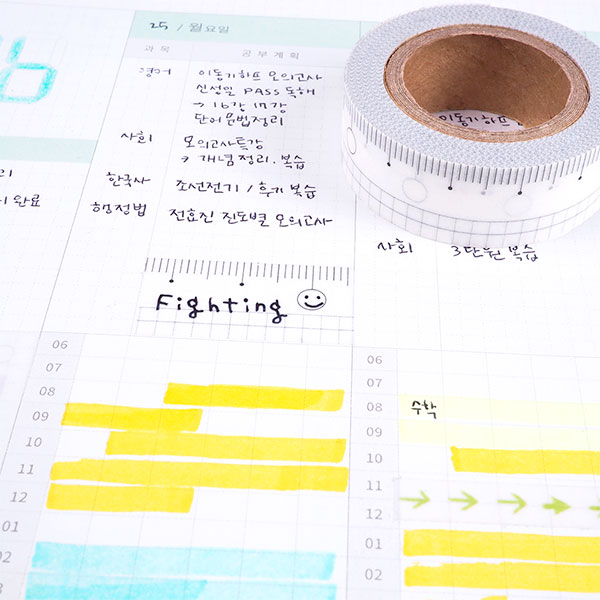 25 / 월요일
과목 공부계획
영어 이동기하프 모의고사
신성일 PASS 독해
→ 16강 17강
단어 문법정리
사회 모의고사특강
* 개념정리. 복습
한국사 조선전기 / 후기 복습
행정법 전효진 진도별 모의고사
Fighting
06
07
08
09
10
11
12
01
02
03
완료
이동기하프
사회 3단원 복습
06
07
08 수학
09
10
11
12
01
02